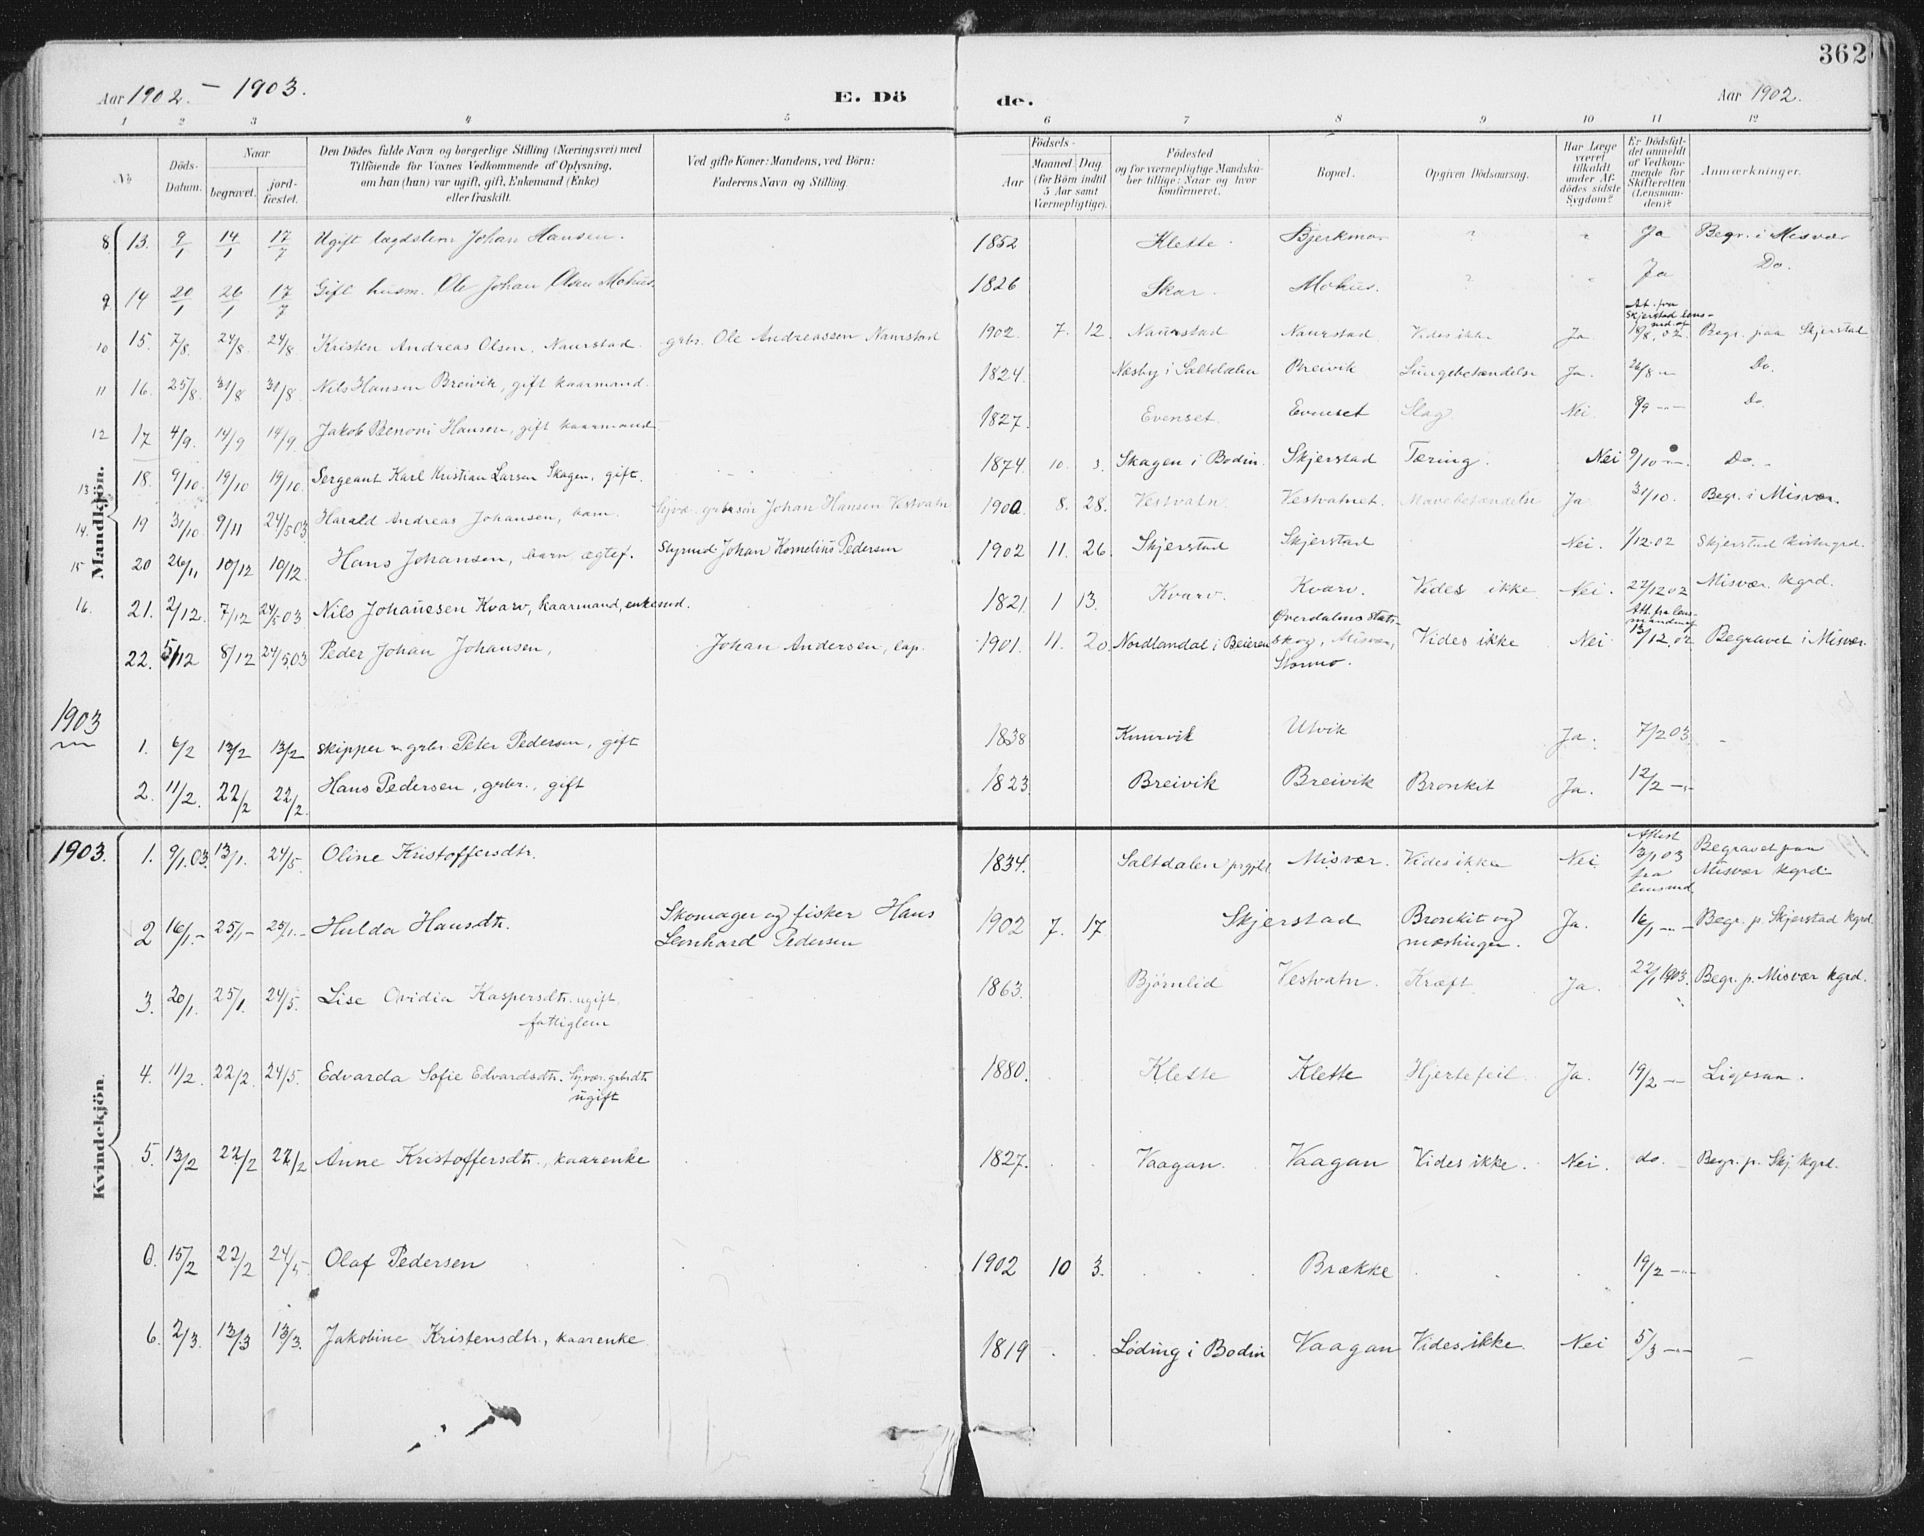 362
Aar 1902. – 1903.
E. Dö
de.
Aar 1902.
1 2 3 4 5 6 7 8 9 10 11 12
No
Döds-Datum.
Naar
begravet.
jord-fæstet.
Den Dödes fulde Navn og borgerlige Stilling (Næringsvei) med
Tilföiende for Voxnes Vedkommende af Oplysning,
om han (hun) var ugift, gift, Enkemand (Enke)
eller fraskilt.
Ved gifte Koner: Mandens, ved Börn:
Faderens Navn og Stilling.
Födsels-
Aar
Maaned Dag
(for Börn indtil
5 Aar samt
Værnepligtige).
Födested
og for værnepligtige Mandska-
ber tillige: Naar og hvor
konfirmeret.
Bopæl.
Opgiven Dödsaarsag.
Har Læge
været
tilkaldt
under Af-
dödes sidste
Sygdom?
Er Dödsfal-
det anmeldt
af Vedkom-
mende for
Skifteretten
(Lensman-
den)?
Anmærkninger.
Mandkjön.
8 13. 9/1 14/1 17/7 Ugift lægdslem Johan Hansen. 1852 Klette. Bjerkmo ? " Ja Begr. i Misvær
9 14 20/1 26/1 17/7 Gift husm. Ole Johan Olsen Mohus. 1826 Skar. Mohus. ? " Ja Do.
10 15. 7/8. 24/8. 24/8. Kristen Andreas Olsen, Naurstad. grbr. Ole Andreassen Naurstad 1902. 7. 12. Naurstad Naurstad Vides ikke Ja. At. fra Skjerstad lens- 18/8. 02. Begr. paa Skjerstad
11 16. 25/8. 31/8 31/8. Nils Hansen Breivik, gift kaarmand. 1824. Næsby i Saltdalen Breivik Lungebetændelse Ja. 26/8 – Do.
12 17 4/9. 14/9 14/9. Jakob Benoni Hansen, gift kaarmand 1827. Evenset. Evenset Slag. Nei. 8/9 – – Do
13 18. 9/10. 19/10 19/10. Sergeant Karl Kristian Larsen Skagen, gift. 1874. 10. 3. Skagen i Bodin. Skjerstad Tæring. Nei 9/10 – – Do.
14. 19 31/10. 9/11 24/5 03 Harald Andreas Johansen, barn. Johan Hansen Vestvatn 1900. 8. 28. Vestvatn. Vestvatnet. Mavebetændelse Ja. 31/10. Begr. i Misvær.
15 20 26/11 10/12 10/12. Hans Johansen, barn ægtef. Johan Kornelius Pedersen 1902 11. 26. Skjerstad Skjerstad Nei. 1/12.02 Skjerstad kirkegrd.
16. 21. 2/12. 7/12 24/5 03. Nils Johanesen Kvarv, kaarmand, enkemd. 1821. 1 13. Kvarv. Kvarv. Vides ikke Nei. 27/12 02 Misvær. kgrd.
22. 5/12 8/12 24/5 03 Peder Johan Johansen, Johan Andersen, lap. 1901. 11. 20. Nordlandal i Beieren Øverdalens stats-
skog, Misvær,
Stormo. Vides ikke Nei Att. fra lens-
manden af
13/12. 02 Begravet i Misvær
1903
1. 6/2 13/2 13/2 skipper og grbr Peter Pedersen, gift 1838 Kunrvik Utvik Ja. 7/2 03. –
2. 11/2. 22/2 22/2. Hans Pedersen, grbr., gift 1823 Breivik Breivik Bronkit Ja. 12/2 – –
Kvindekjön.
1903. 1. 9/1.03. 13/1. 24/5 Oline Kristoffersdtr. 1834. Saltdalen prgjld. Misvær. Vides ikke Nei Attest
13/1 03
fra
lensmd Begravet paa
Misvær kgrd.
2 16/1.– 25/1– 25/1.– Hulda Hansdtr. Skomager og fisker Hans
Leonhard Pedersen 1902 7. 17 Skjerstad Bronkit og
mæslinger. Ja. 16/1 – – Begr. p. Skjerstad kgrd
3. 20/1. 25/1. 24/5. Lise Ovidia Kaspersdtr. ugift.
fattiglem 1863. Bjørnlid Vestvatn. Kræft Ja. 22/1 1903. Begr. p. Misvær kgrd.
4. 11/2. 22/2. 24/5. Edvarda Sofie Edvardsdtr.
ugift 1880. Klette Klette Hjertefeil. Ja. 19/2 – – Ligesaa.
5. 13/2 22/2 22/2 Anne Kristoffersdtr., kaarenke 1827. Vaagan. Vaagan Vides ikke. Nei. do. – Begr. p. Skj. kgrd.
0. 15/2 22/2 24/5 Olaf Pedersen 1902 10 3. Brække 19/2 – –
6. 2/3. 13/3 13/3. Jakobine Kristensdtr., kaarenke 1819 Løding i Bodin Vaagan Vides ikke. Nei 5/3 – – –